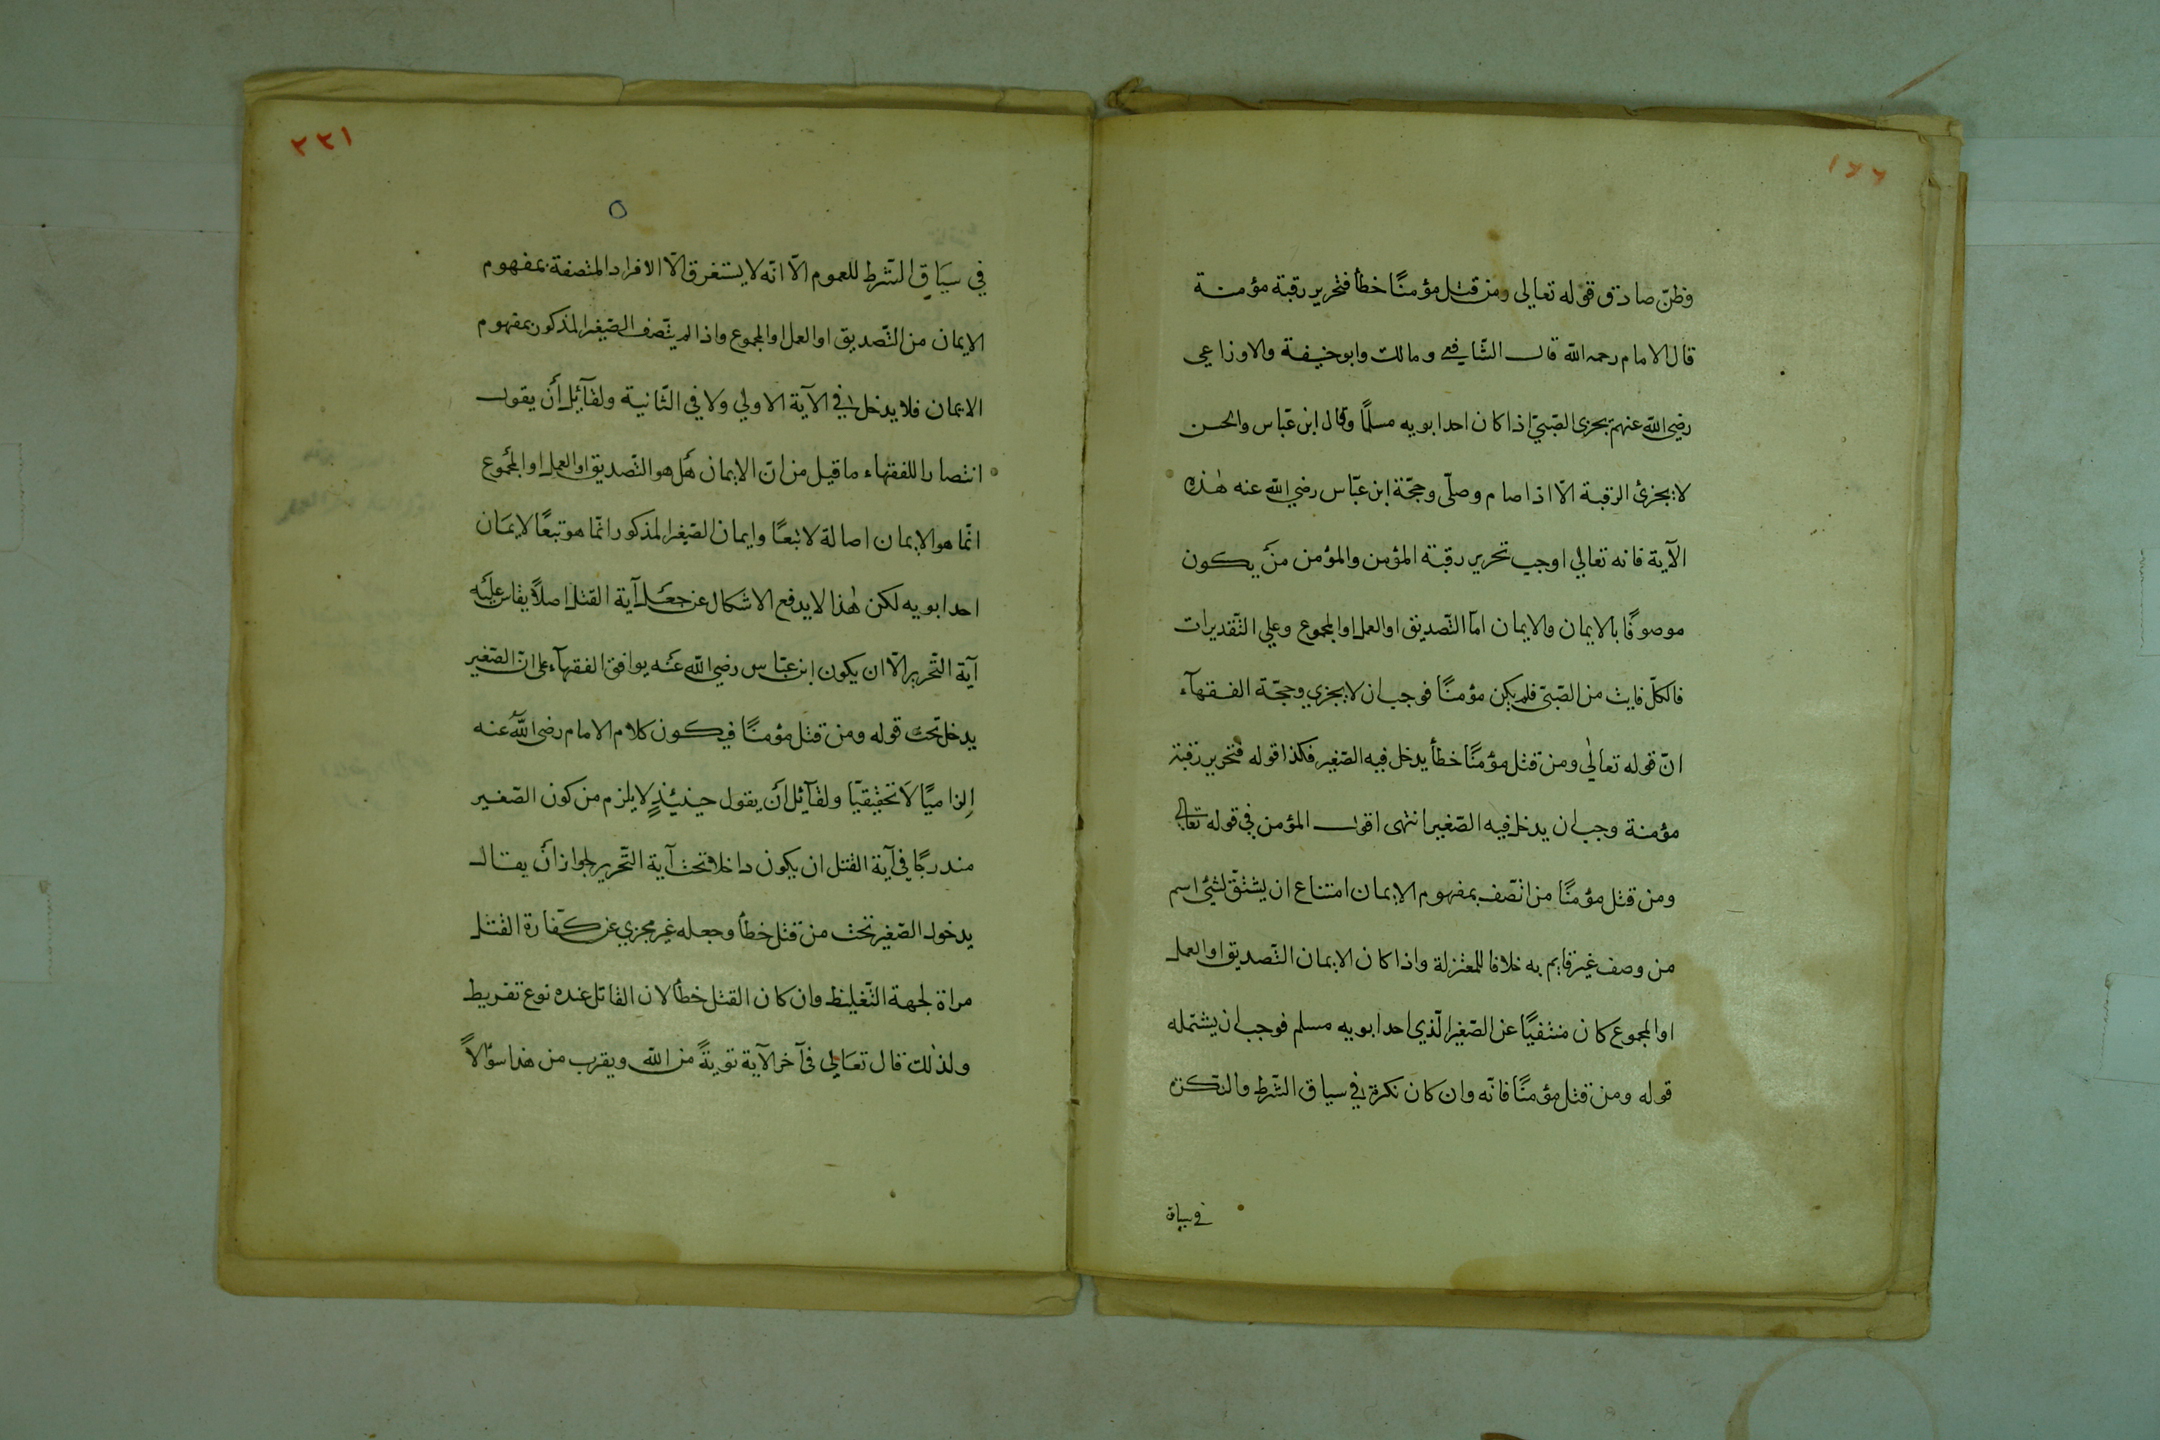 وظنّ صادق قوله تعالى ومن قتل مؤمنًا خطأ فتحرير رقبة مؤمنة
قال الامام رحمه الله قال الشّافعي ومالك وابوحنيفة والاوزاعي
رضي الله عنهم يجزى الصّبيّ اذا كان احد ابويه مسلمًا وقال ابن عبّاس والحسن
لا يجزئ الرّقبة الّا اذا صام وصلّى وحجّة ابن عبّاس رضي الله عنه هذه
الآية فانه تعالى اوجب تحرير رقبته المؤمن والمؤمن منْ يكون
موصوفًا بالايمان والايمان امّا التّصديق او العمل او المجموع وعلى التّقديرات
فالكلّ فايت من الصّبيّ فلم يكن مؤمنًا فوجب ان لا يجزي وحجّة الفقهآء
انّ قوله تعالى ومن قتل مؤمنًا خطأ يدخل فيه الصّغير فكذا قوله فتحرير رقبة
مؤمنة وجب ان يدخل فيه الصّغير انتهى اقول المؤمن في قوله تعالى
ومن قتل مؤمنًا من اتّصف بمفهوم الايمان امتناع ان يشتقّ لشئ اسم
من وصف غير قايم به خلافا للمعتزلة واذا كان الايمان التّصديق او العمل
او المجموع كان منتفيًا عن الصّغير الّذي احد ابويه مسلم فوجب ان يشتمله
قوله ومن قتل مؤمنًا فانّه وان كان نكرة في سياق الشّرط والنّكرة
في سياق
١٢٢
٢٢١
في سيَاق الشّرط للعموم الّا انّه لا يستغرق الّا الافراد المتصفة بمفهوم
الايمان من التّصديق او العمل او المجموع واذا لم يتّصف الصّغير المذكور بمفهوم
الايمان فلا يدخل في الآية الاولي ولا في الثّانية ولقآئل أنْ يقول
انتصارا للفقهاء ما قيل من انّ الايمان هَل هو التّصديق او العمل او المجموع
انّما هو الايمان اصالة لا تبعًا وايمان الصّغير المذكور انّما هو تبعًا لايمَان
احد ابويه لكن هٰذا لا يدفع الاشكال عن جعَل آية القتل اصلاً يقاس عليَه
آية التّحرير الّا ان يكون ابن عبّاس رضي الله عنَه يوافق الفقهآء على انّ الصّغير
يدخل تحت قوله ومن قتل مؤمنًا فيكون كلام الامام رضى الله عنه
إلزاميًّا لَا تحقيقيّا ولقآئل أنْ يقول حينئذٍ لا يلزم من كون الصّغير
مندرجًا في آية القتل ان يكون داخلا تحت آية التّحرير لجواز أنْ يقال
يدخول الصّغير تحت من قتل خطأ وجعله غير مجزي عن كفّارة القتل
مراة لجهة التّغليظ وان كان القتل خطأ لان القاتل عنده نوع تفريط
ولذٰلك قال تعَالى في آخر الآية توبةً من الله ويقرب من هذا سؤالاً